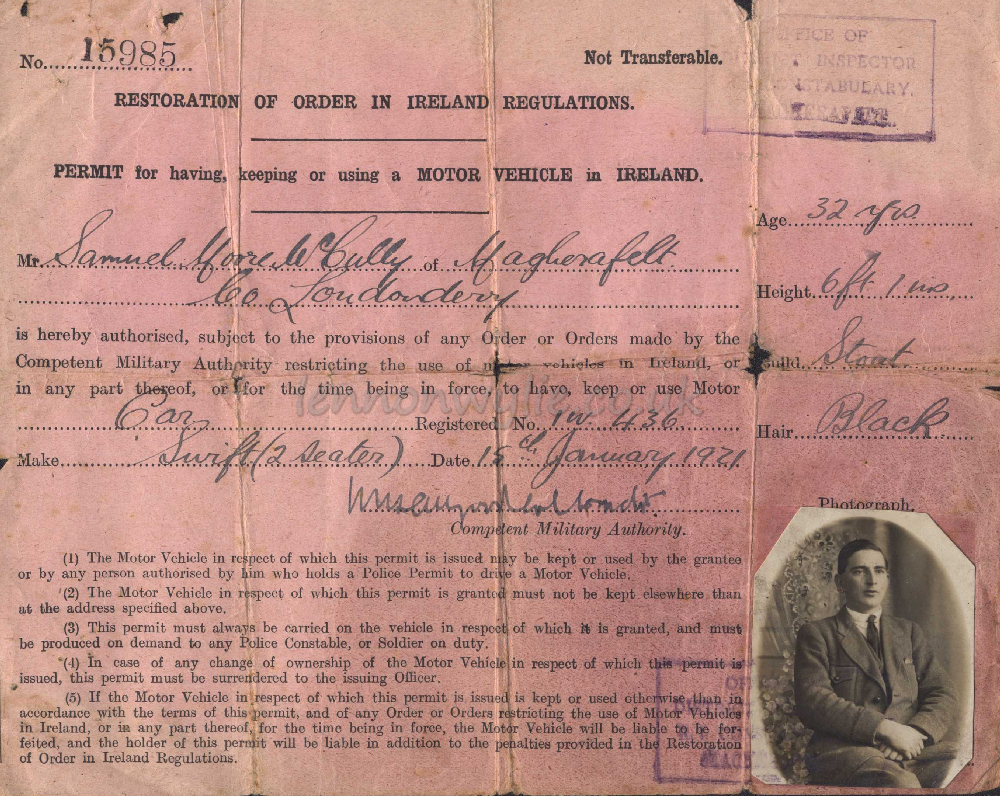 No. 15985
Not Transferable.
OFFICE OF
INSPECTOR
CONSTABULARY,
RESTORATION OF ORDER IN IRELAND REGULATIONS.
PERMIT for having, keeping or using a MOTOR VEHICLE in IRELAND.
Age 32 yrs.
Mr. Samuel Moore McCully of Magherafelt
Co Londonderry
Height 6 ft 1 ins
is hereby authorised, subject to the provisions of any Order or Orders made by the
Competent Military Authority restricting the use of motor vehicles in Ireland, or
Build Stout
in any part thereof, or for the time being in force, to have, keep or use Motor
Car Registered No. IW 436
Hair Black
Make Swift (2 seater) Date 15th January 1921
Competent Military Authority.
Photograph.
(1) The Motor Vehicle in respect of which this permit is issued may be kept or used by the grantee
or by any person authorised by him who holds a Police Permit to drive a Motor Vehicle.
(2) The Motor Vehicle in respect of which this permit is granted must not be kept elsewhere than
at the address specified above.
(3) This permit must always be carried on the vehicle in respect of which it is granted, and must
be produced on demand to any Police Constable, or Soldier on duty.
(4) In case of any change of ownership of the Motor Vehicle in respect of which this permit is
issued, this permit must be surrendered to the issuing Officer.
(5) If the Motor Vehicle in respect of which this permit is issued is kept or used otherwise than in
accordance with the terms of this permit, and of any Order or Orders restricting the use of Motor Vehicles
in Ireland, or in any part thereof, for the time being in force, the Motor Vehicle will be liable to be for-
feited, and the holder of this permit will be liable in addition to the penalties provided in the Restoration
of Order in Ireland Regulations.